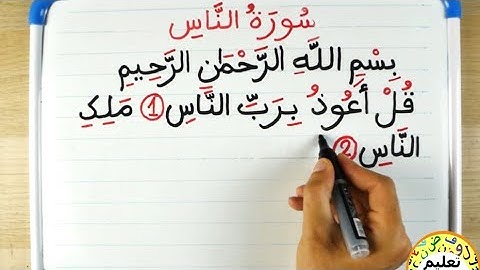 سُورَةُ النَّاسِ
بِسْمِ اللَّهِ الرَّحْمَٰنِ الرَّحِيمِ
قُلْ أَعُوذُ بِرَبِّ النَّاسِ ① مَلِكِ
النَّاسِ ②
تعليم